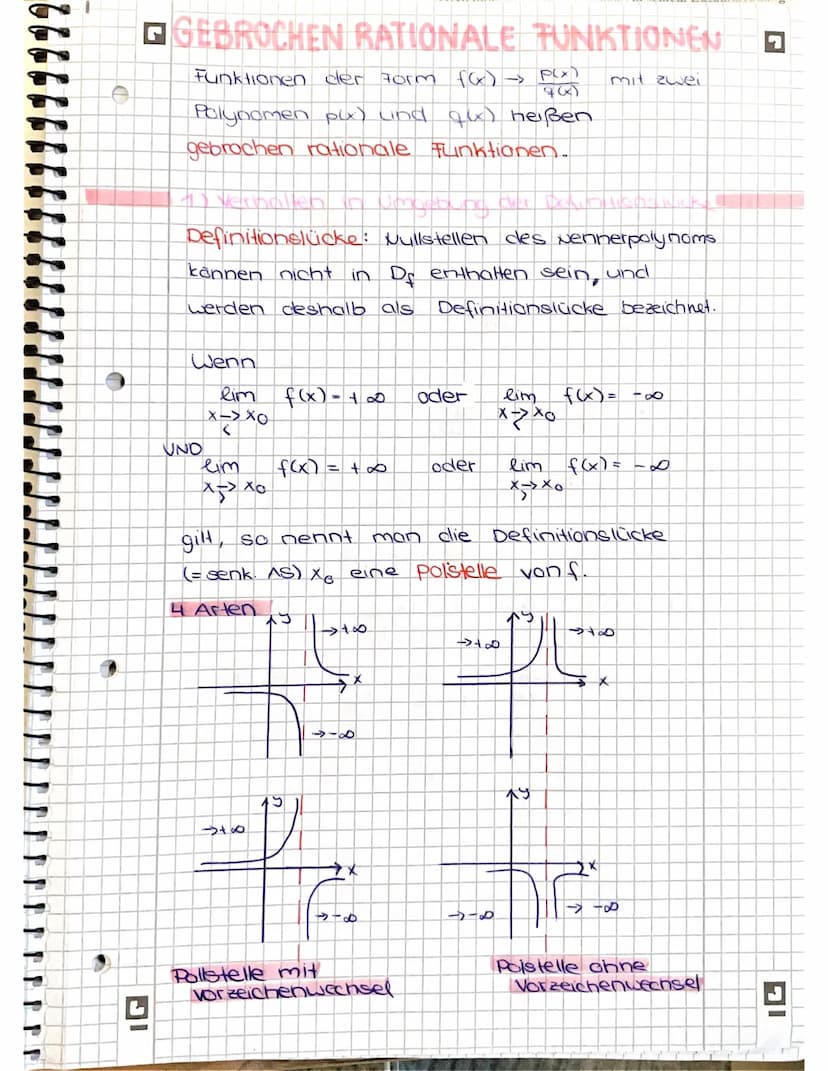 GEBROCHEN RATIONALE FUNKTIONEN
Funktionen der Form f(x) → p(x)/q(x) mit zwei
Polynomen p(x) und q(x) heißen
gebrochen rationale Funktionen.
1) Verhalten in Umgebung der Definitionslücke
Definitionslücke: Nullstellen des Nennerpolynoms
können nicht in Df enthalten sein, und
werden deshalb als Definitionslücke bezeichnet.
Wenn
lim f(x) = +∞ oder lim f(x) = -∞
x→x0 x→x0
< <
UND
lim f(x) = +∞ oder lim f(x) = -∞
x→x0 x→x0
> >
gilt, so nennt man die Definitionslücke
(= senk. AS) x0 eine Polstelle von f.
4 Arten
y →+∞ x →-∞
y →+∞ →+∞ x
y →+∞ x →-∞
y x →-∞ → -∞
Pollstelle mit
Vorzeichenwechsel
Polstelle ohne
Vorzeichenwechsel